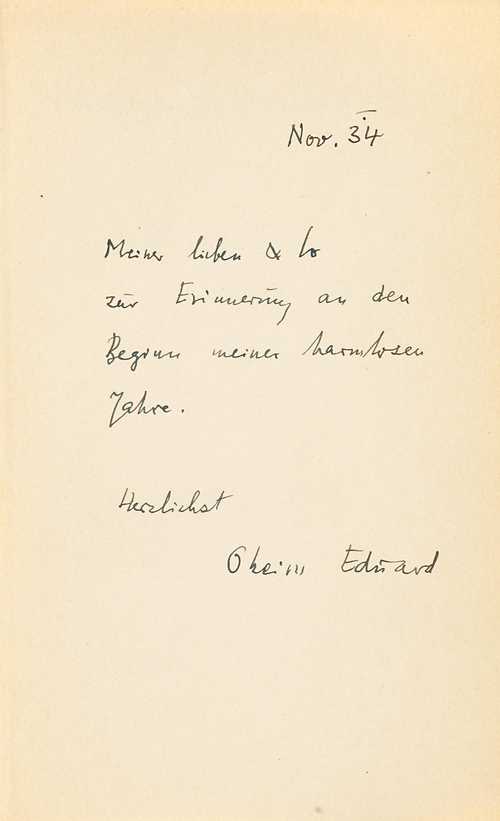 Nov. 34
Meiner lieben & Lo
zur Erinnerung an den
Beginn meiner harmlosen
Jahre.
Herzlichst
Oheim Eduard